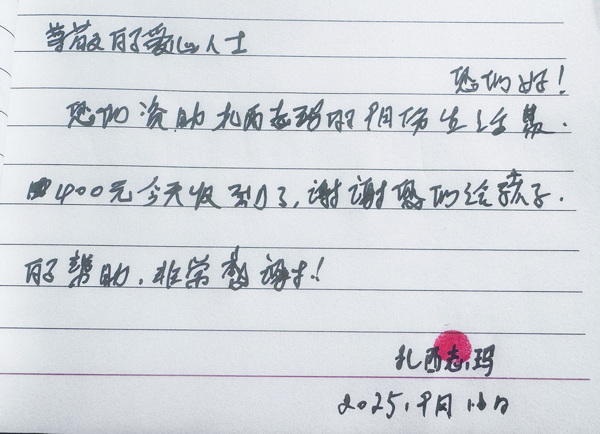 尊敬的爱心人士
您们好！
您们资助扎西志玛的9月份生活费.
400元今天收到了,谢谢您们给孩子.
的帮助.非常感谢！
扎西志玛
2025.9月16日